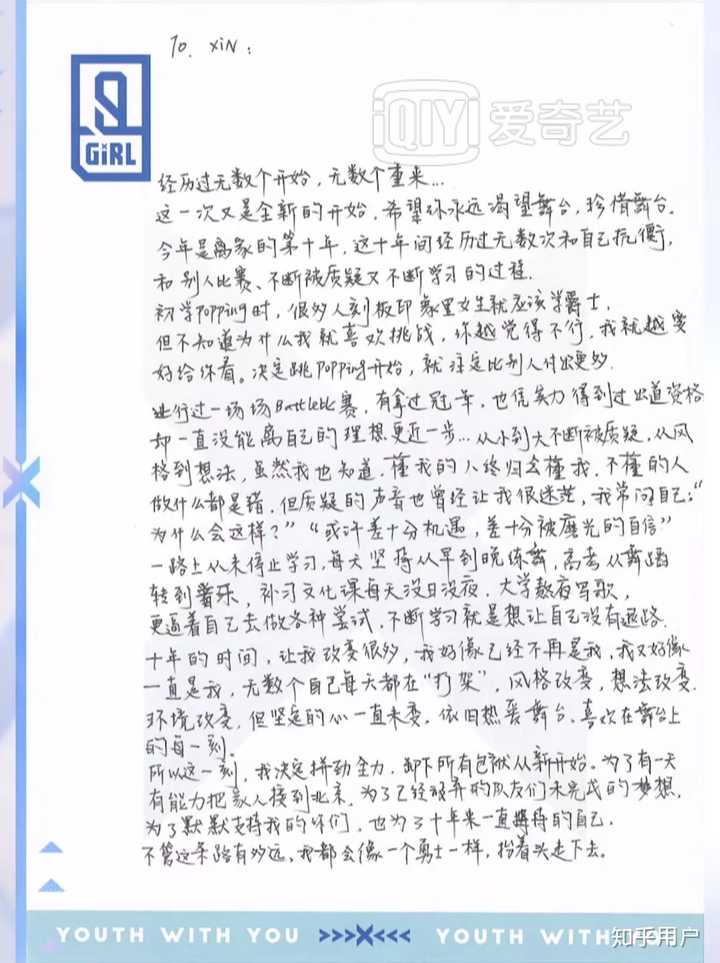 To. XiN:
iQIYI 爱奇艺
GiRL
经历过无数个开始,无数个重来...
这一次又是全新的开始,希望你永远渴望舞台,珍惜舞台.
今年是离家的第十年,这十年间经历过无数次和自己抗衡,
和别人比赛、不断被质疑又不断学习的过程.
初学Popping时,很多人刻板印象里女生就应该学爵士.
但不知道为什么我就喜欢挑战,你越觉得不行,我就越要
好给你看。决定跳Popping开始,就注定比别人付出更多.
进行过一场场Battle比赛,有拿过冠军,也凭实力得到过出道资格
却一直没能离自己的理想更近一步... 从小到大不断被质疑,从风
格到想法,虽然我也知道,懂我的人终归会懂我,不懂的人
做什么都是错,但质疑的声音也曾经让我很迷茫,我常问自己:“
为什么会这样?” “或许差十分机遇,差十分被磨光的自信”
一路上从未停止学习,每天坚持从早到晚练舞,高考从舞蹈
转到音乐,补习文化课每天没日没夜,大学熬夜写歌,
更逼着自己去做各种尝试,不断学习就是想让自己没有退路.
十年的时间,让我改变很多,我好像已经不再是我,我又好像
一直是我,无数个自己每天都在“打架”,风格改变,想法改变.
环境改变,但坚定的心一直未变,依旧热爱舞台、喜欢在舞台上
的每一刻.
所以这一刻,我决定拼劲全力,卸下所有包袱从新开始。为了有一天
有能力把家人接到北京,为了已经放弃的队友们未完成的梦想,
为了默默支持我的你们,也为了十年来一直坚持的自己.
不管这条路有多远、我都会像一个勇士一样,抬着头走下去。
YOUTH WITH YOU >>>X<<< YOUTH WITH
知乎用户